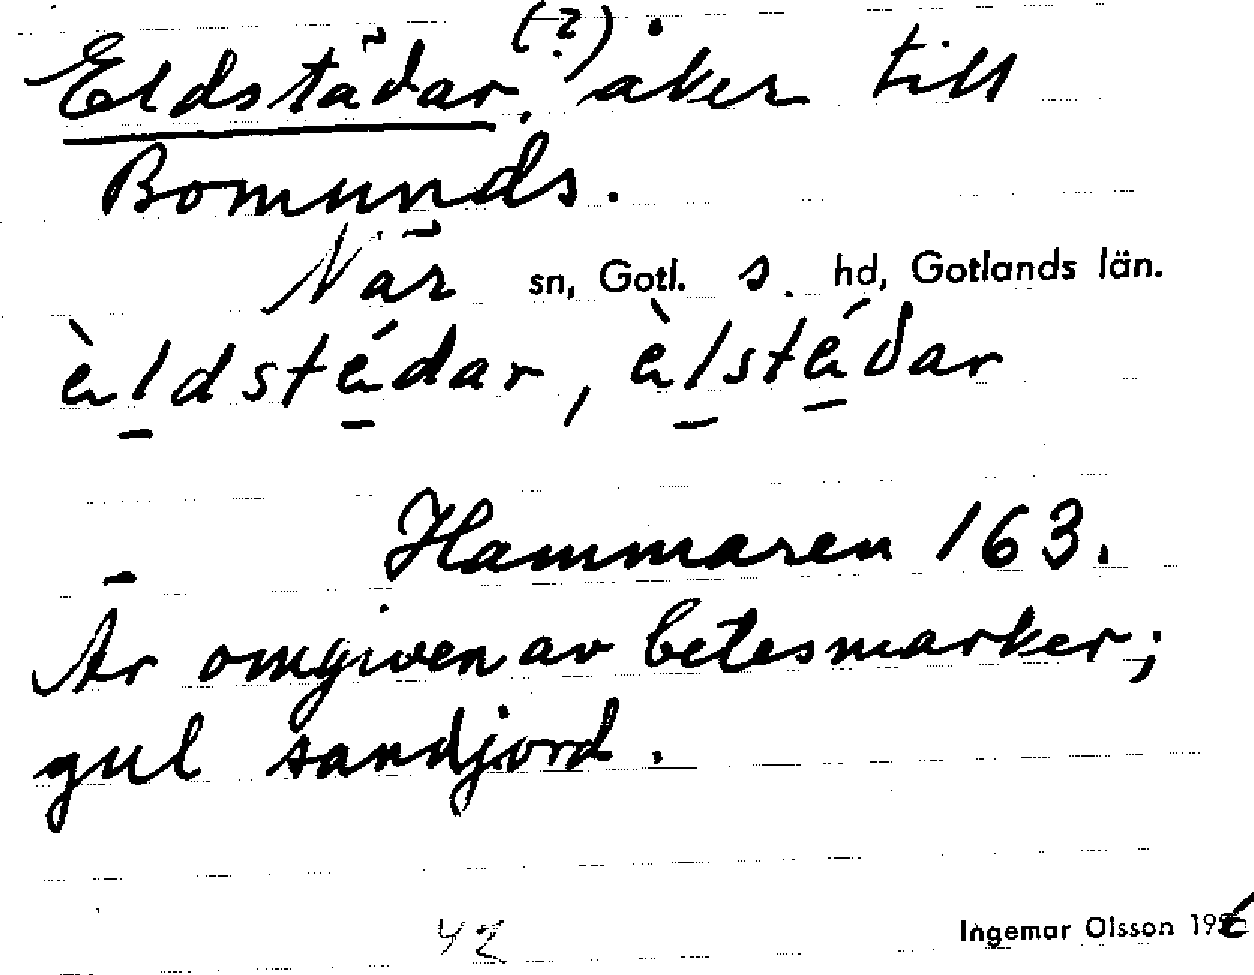 Eldstädar (?), åker till
Bomunds.
När sn, Gotl. s. hd, Gotlands län.
èldstédar, èlstéðar
Hammaren 163.
Är omgiven av betesmarker;
gul sandjord.
42
Ingemar Olsson 19